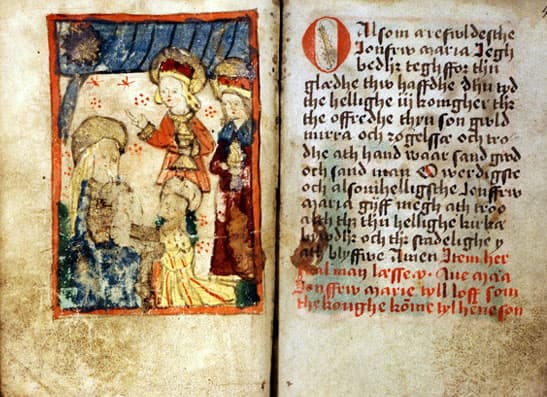 O Alsom arefwldesthe
Jonfrw maria Jegh
bedhr teghffor thn
glædhe thw haffdhe dhn tyd
the hellighe iij konigher thr
the offredhe thyn son gwld
mirra och røgelssæ och tro
dhe ath hand waar sand gwd
och sand man O werdigste
och alsomhelligsthe Jonffrw
maria gyff megh ath troo
thr thn hellighe kirkæ
och thr stadelighe y
ath blyffwe Amen Item her
skal man læssæ Aue maia
Jonffrw marie tyll loff som
the konghe kome tyl hene son